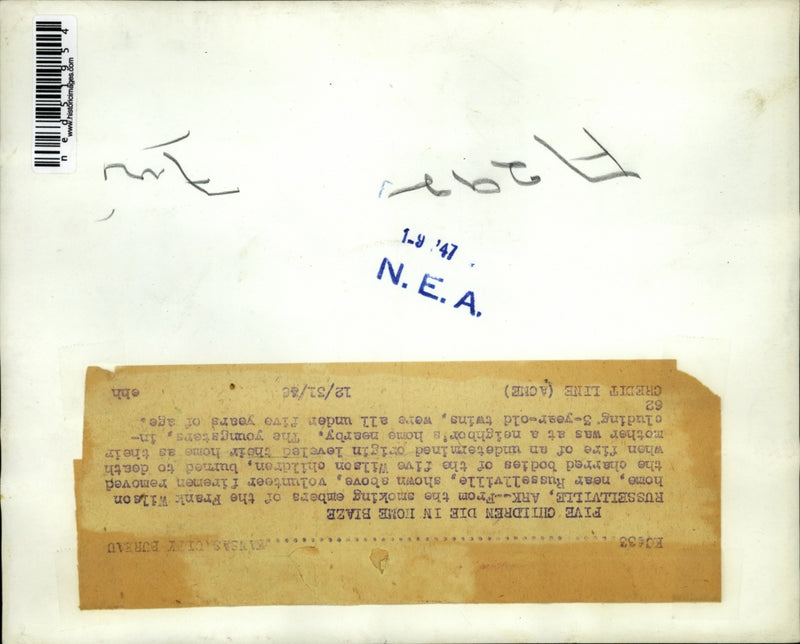 n e d 5 1 9 5 4
www.historicimages.com
1-9 '47
N. E. A.
KANSAS CITY BUREAU
FIVE CHILDREN DIE IN HOME BLAZE
RUSSELLVILLE, ARK,--From the smoking embers of the Frank Wilson
home, near Russellville, shown above, volunteer firemen removed
the charred bodies of the five Wilson children, burned to death
when fire of an undetermined origin leveled their home as their
mother was at a neighbor's home nearby. The youngsters, in-
cluding 3-year-old twins, were all under five years of age.
62
CREDIT LINE (ACME) 12/31/46 ehh